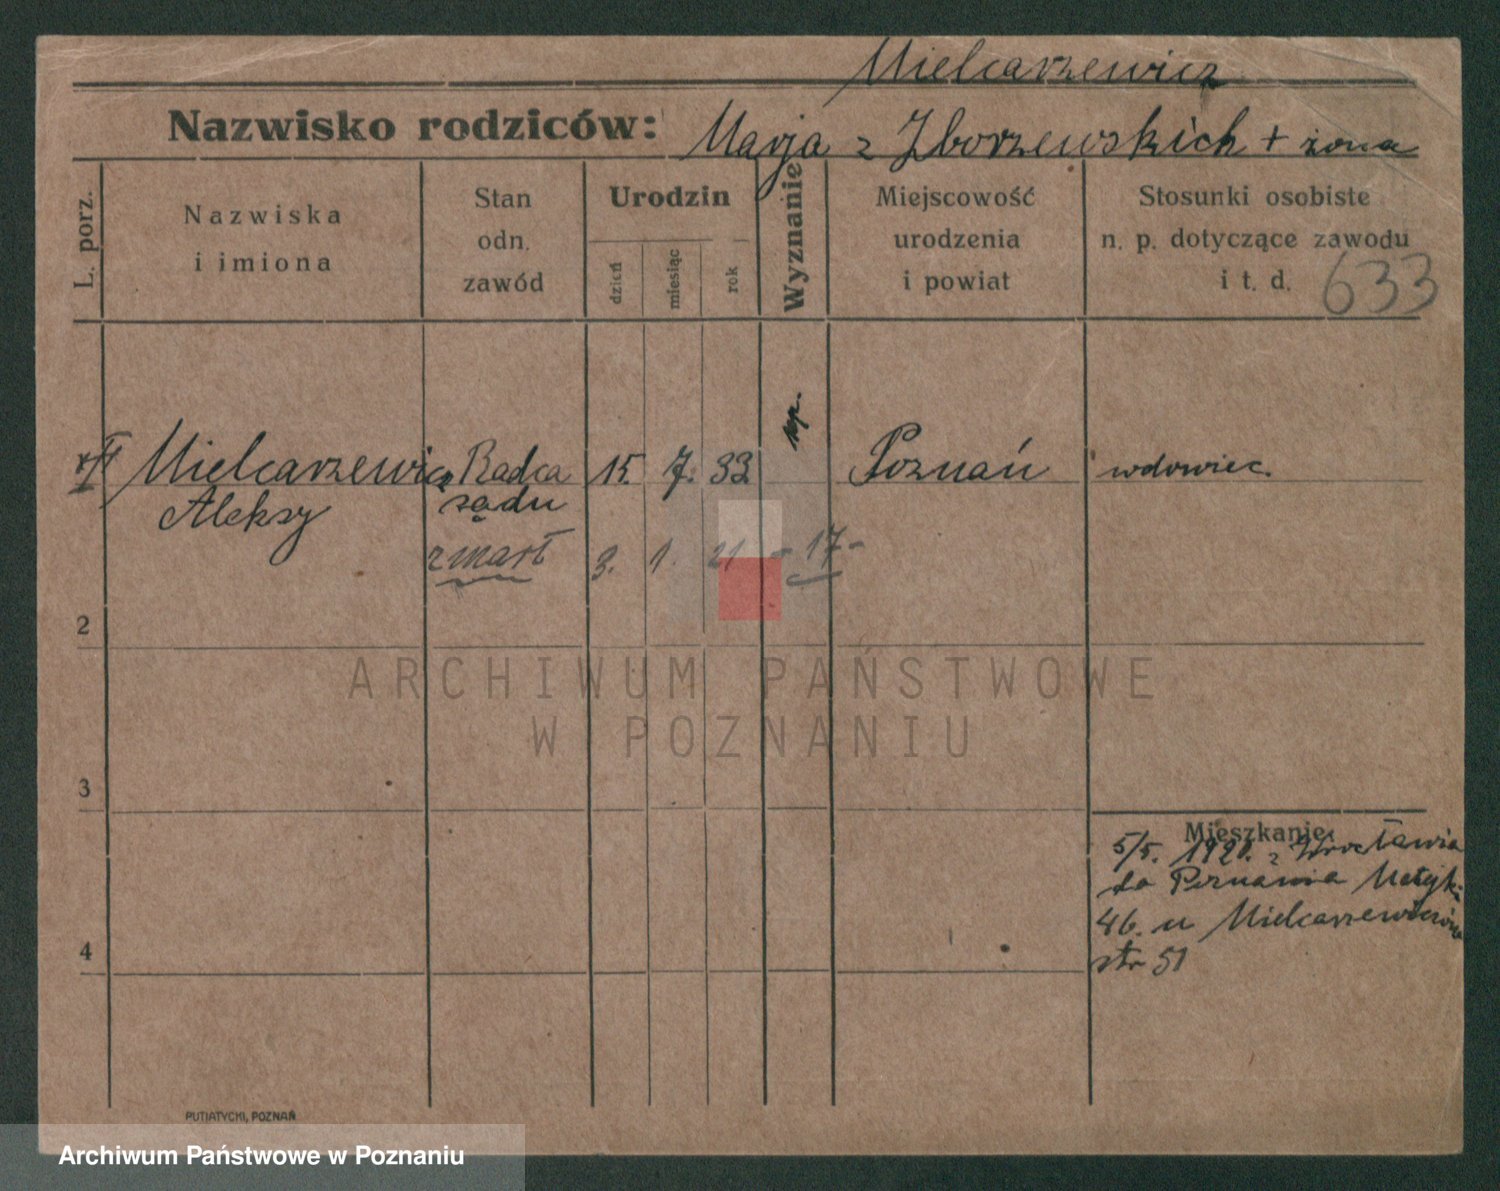 Mielcarzewicz
Nazwisko rodziców: Marja z Zborzewskich + żona
L. porz.
Nazwiska
i imiona
Stan
odn.
zawód
Urodzin
dzień
miesiąc
rok
Wyznanie
Miejscowość
urodzenia
i powiat
Stosunki osobiste
n. p. dotyczące zawodu
i t. d.
633
Mielcarzewicz Radca 15. 7. 33 Poznań wdowiec.
Aleksy sądu
zmarł 3. 1. 21 - 17-
2
ARCHIWUM PAŃSTWOWE
W POZNANIU
3
Mieszkanie:
5/5. 1920. z Wrocławia
do Poznania Matejk.
46. u
str 51
4
PUTIATYCKI, POZNAŃ
Archiwum Państwowe w Poznaniu